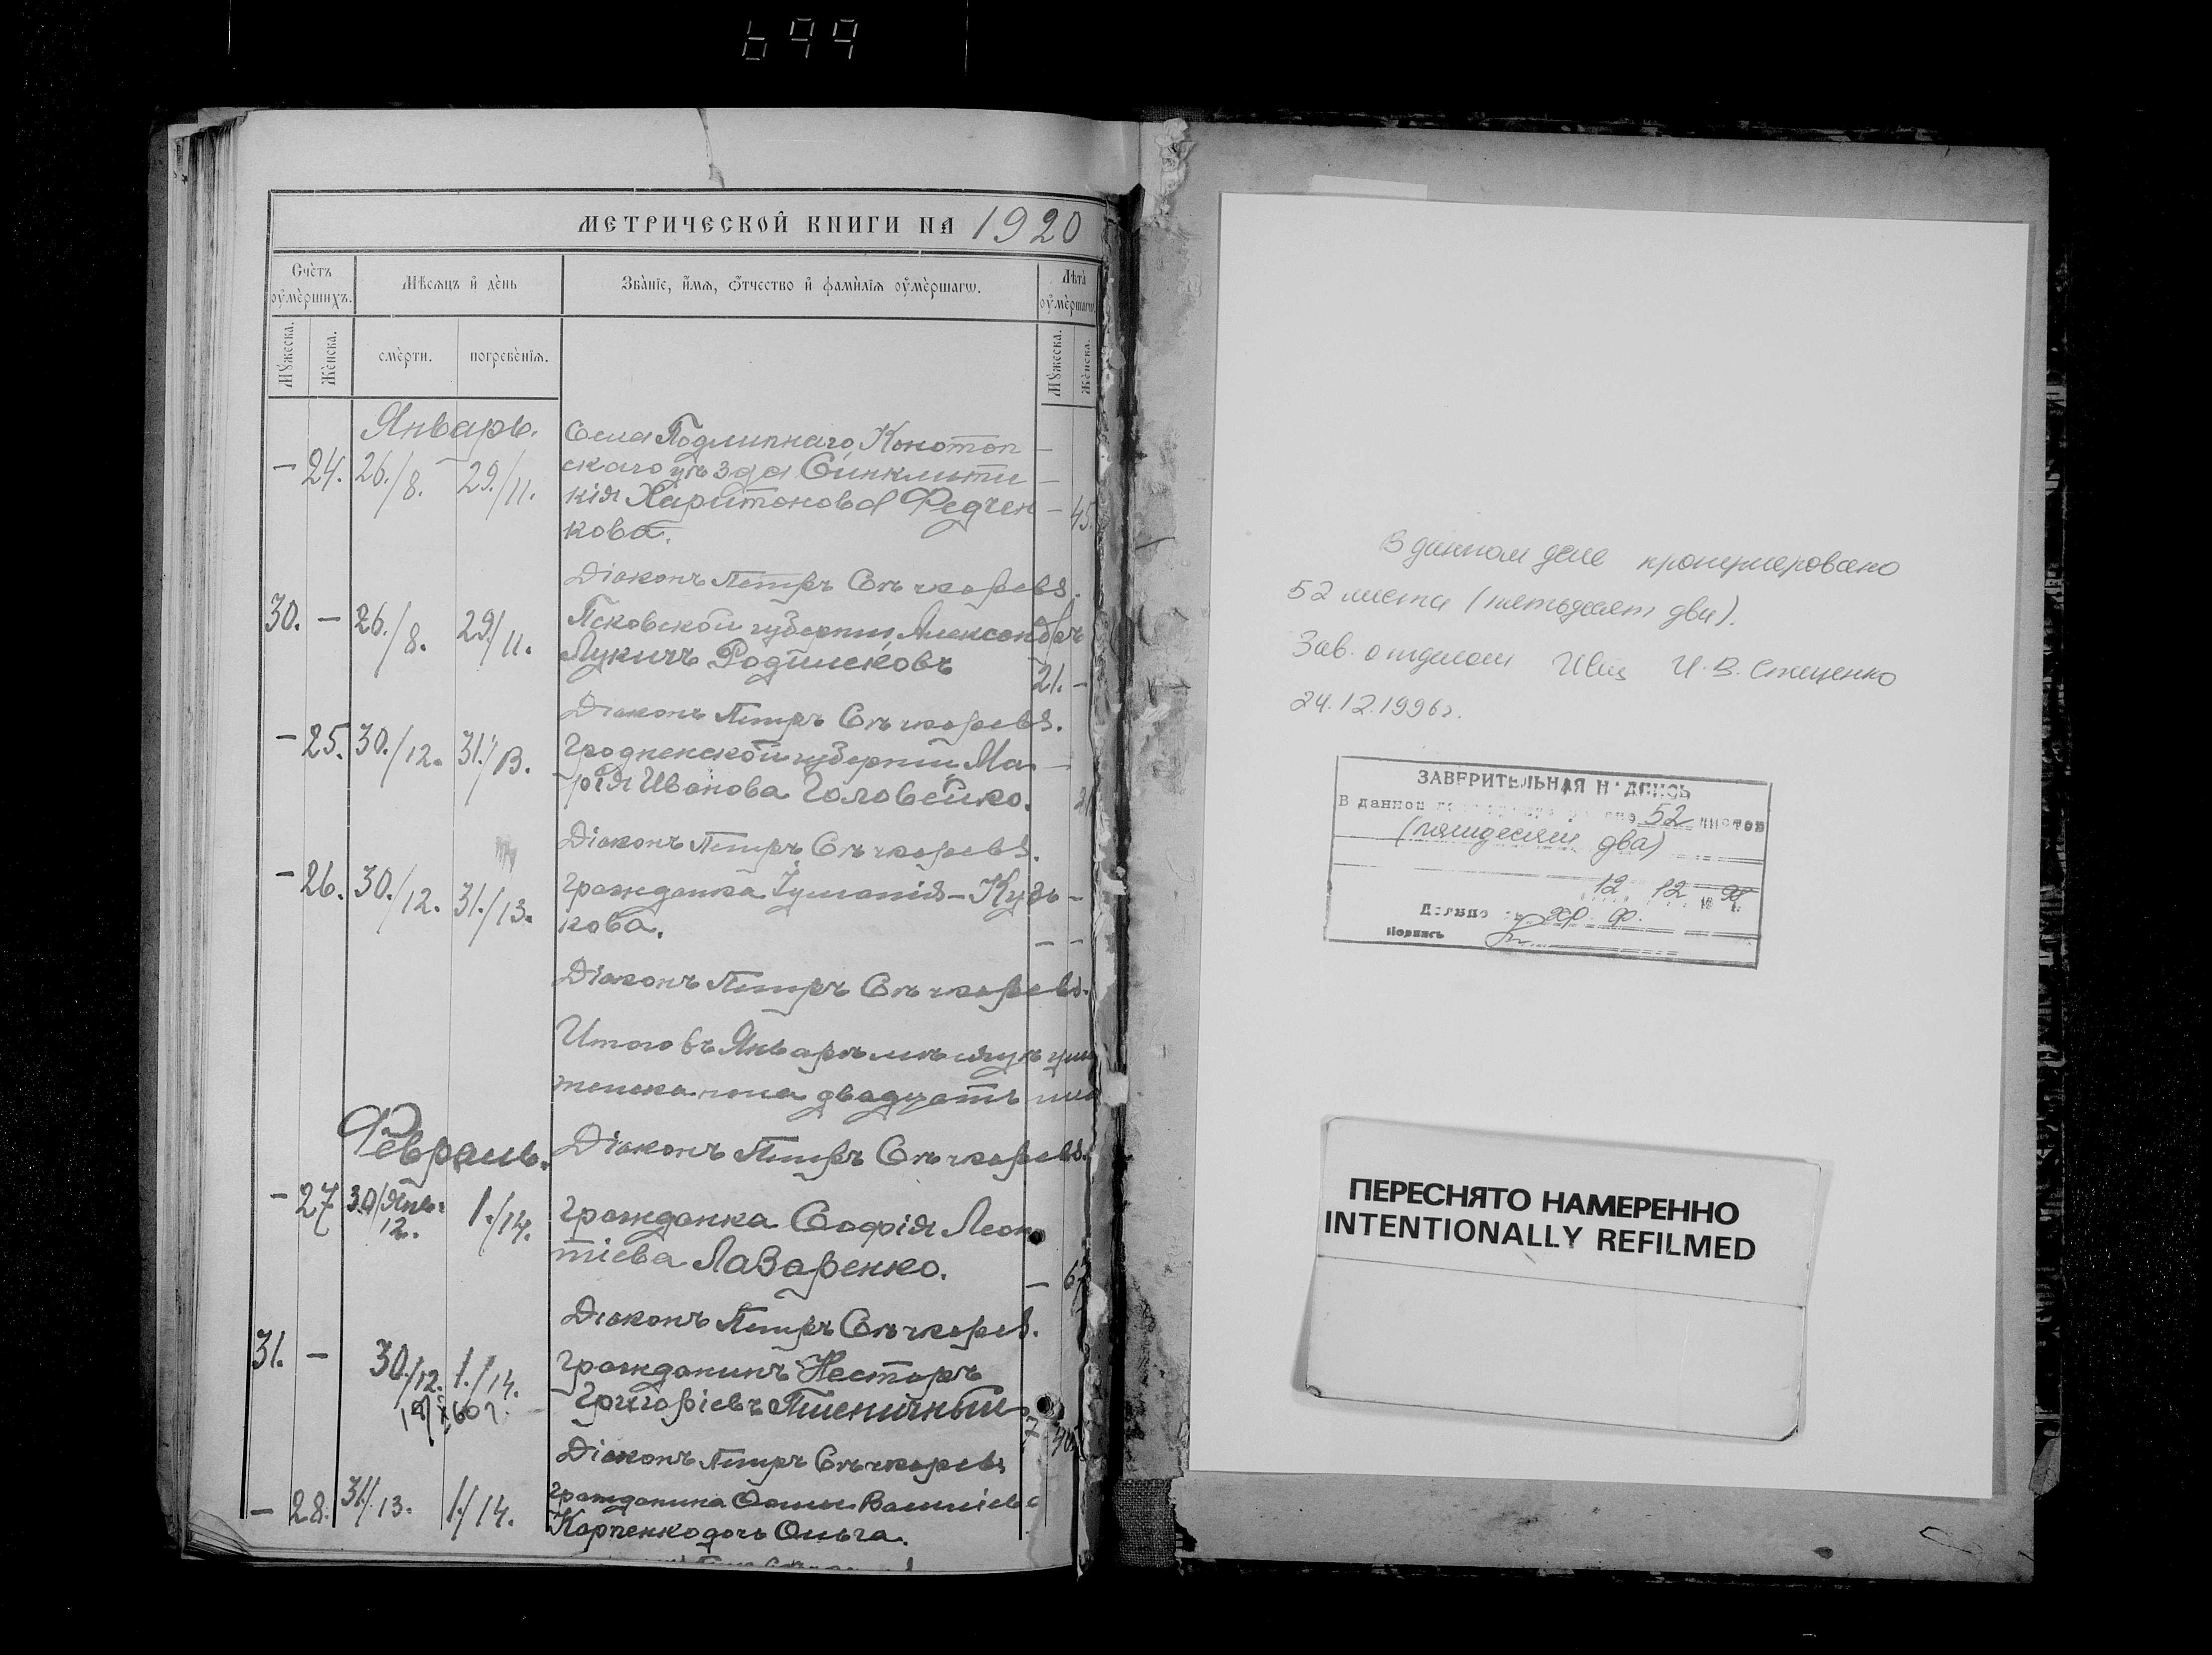 699
МЕТРИЧЕСКОЙ КНИГИ НА 1920
Счетъ оумершихъ.
Мѣсяцъ и день
Званіе, имя, отчество и фамилія оумершагω.
Лѣта оумершагω
Мужеска.
Женска.
смерти.
погребенія.
Мужеска.
Женска.
Январь.
Села Подлипнаго, Конотоп
— 24. 26./8. 29./11. скаго уѣзда Синклити
кія Харитонова Федчен — 45.
кова.
Діаконъ Петръ Сѣчкаревъ.
30. — 26./8. 29./11. Псковской губерніи, Александръ
Лукичъ Родшековъ 21. —
Діаконъ Петръ Сѣчкаревъ.
— 25. 30./12. 31./13. Гродненской губерніи, Ма
рія Иванова Головейко.
Діаконъ Петръ Сѣчкаревъ.
— 26. 30./12. 31./13. Гражданка Іуліанія Кузь
кова. — —
Діаконъ Петръ Сѣчкаревъ.
Итого въ Январѣ мѣсяцѣ
женска пола двадцать
Февраль. Діаконъ Петръ Сѣчкаревъ.
— 27 30/Янв. 12. 1./14. Гражданка Софія Леон
тіева Лазаренко. — 67
Діаконъ Петръ Сѣчкарев.
31. — 30./12. 1./14. Гражданинъ Несторъ
Григоріевъ Пшеничный
Діаконъ Петръ Сѣчкаревъ
— 28. 31/13. 1./14. Гражданина
Карпенко дочь Ольга.
В данном деле пронумеровано
52 листа (пятьдесят два).
Зав. отделом И.В. Стеценко
24.12.1996г.
ЗАВЕРИТЕЛЬНАЯ НАДПИСЬ
В данном 52 листов
(пятьдесят два)
12 12
Подпись
ПЕРЕСНЯТО НАМЕРЕННО
INTENTIONALLY REFILMED